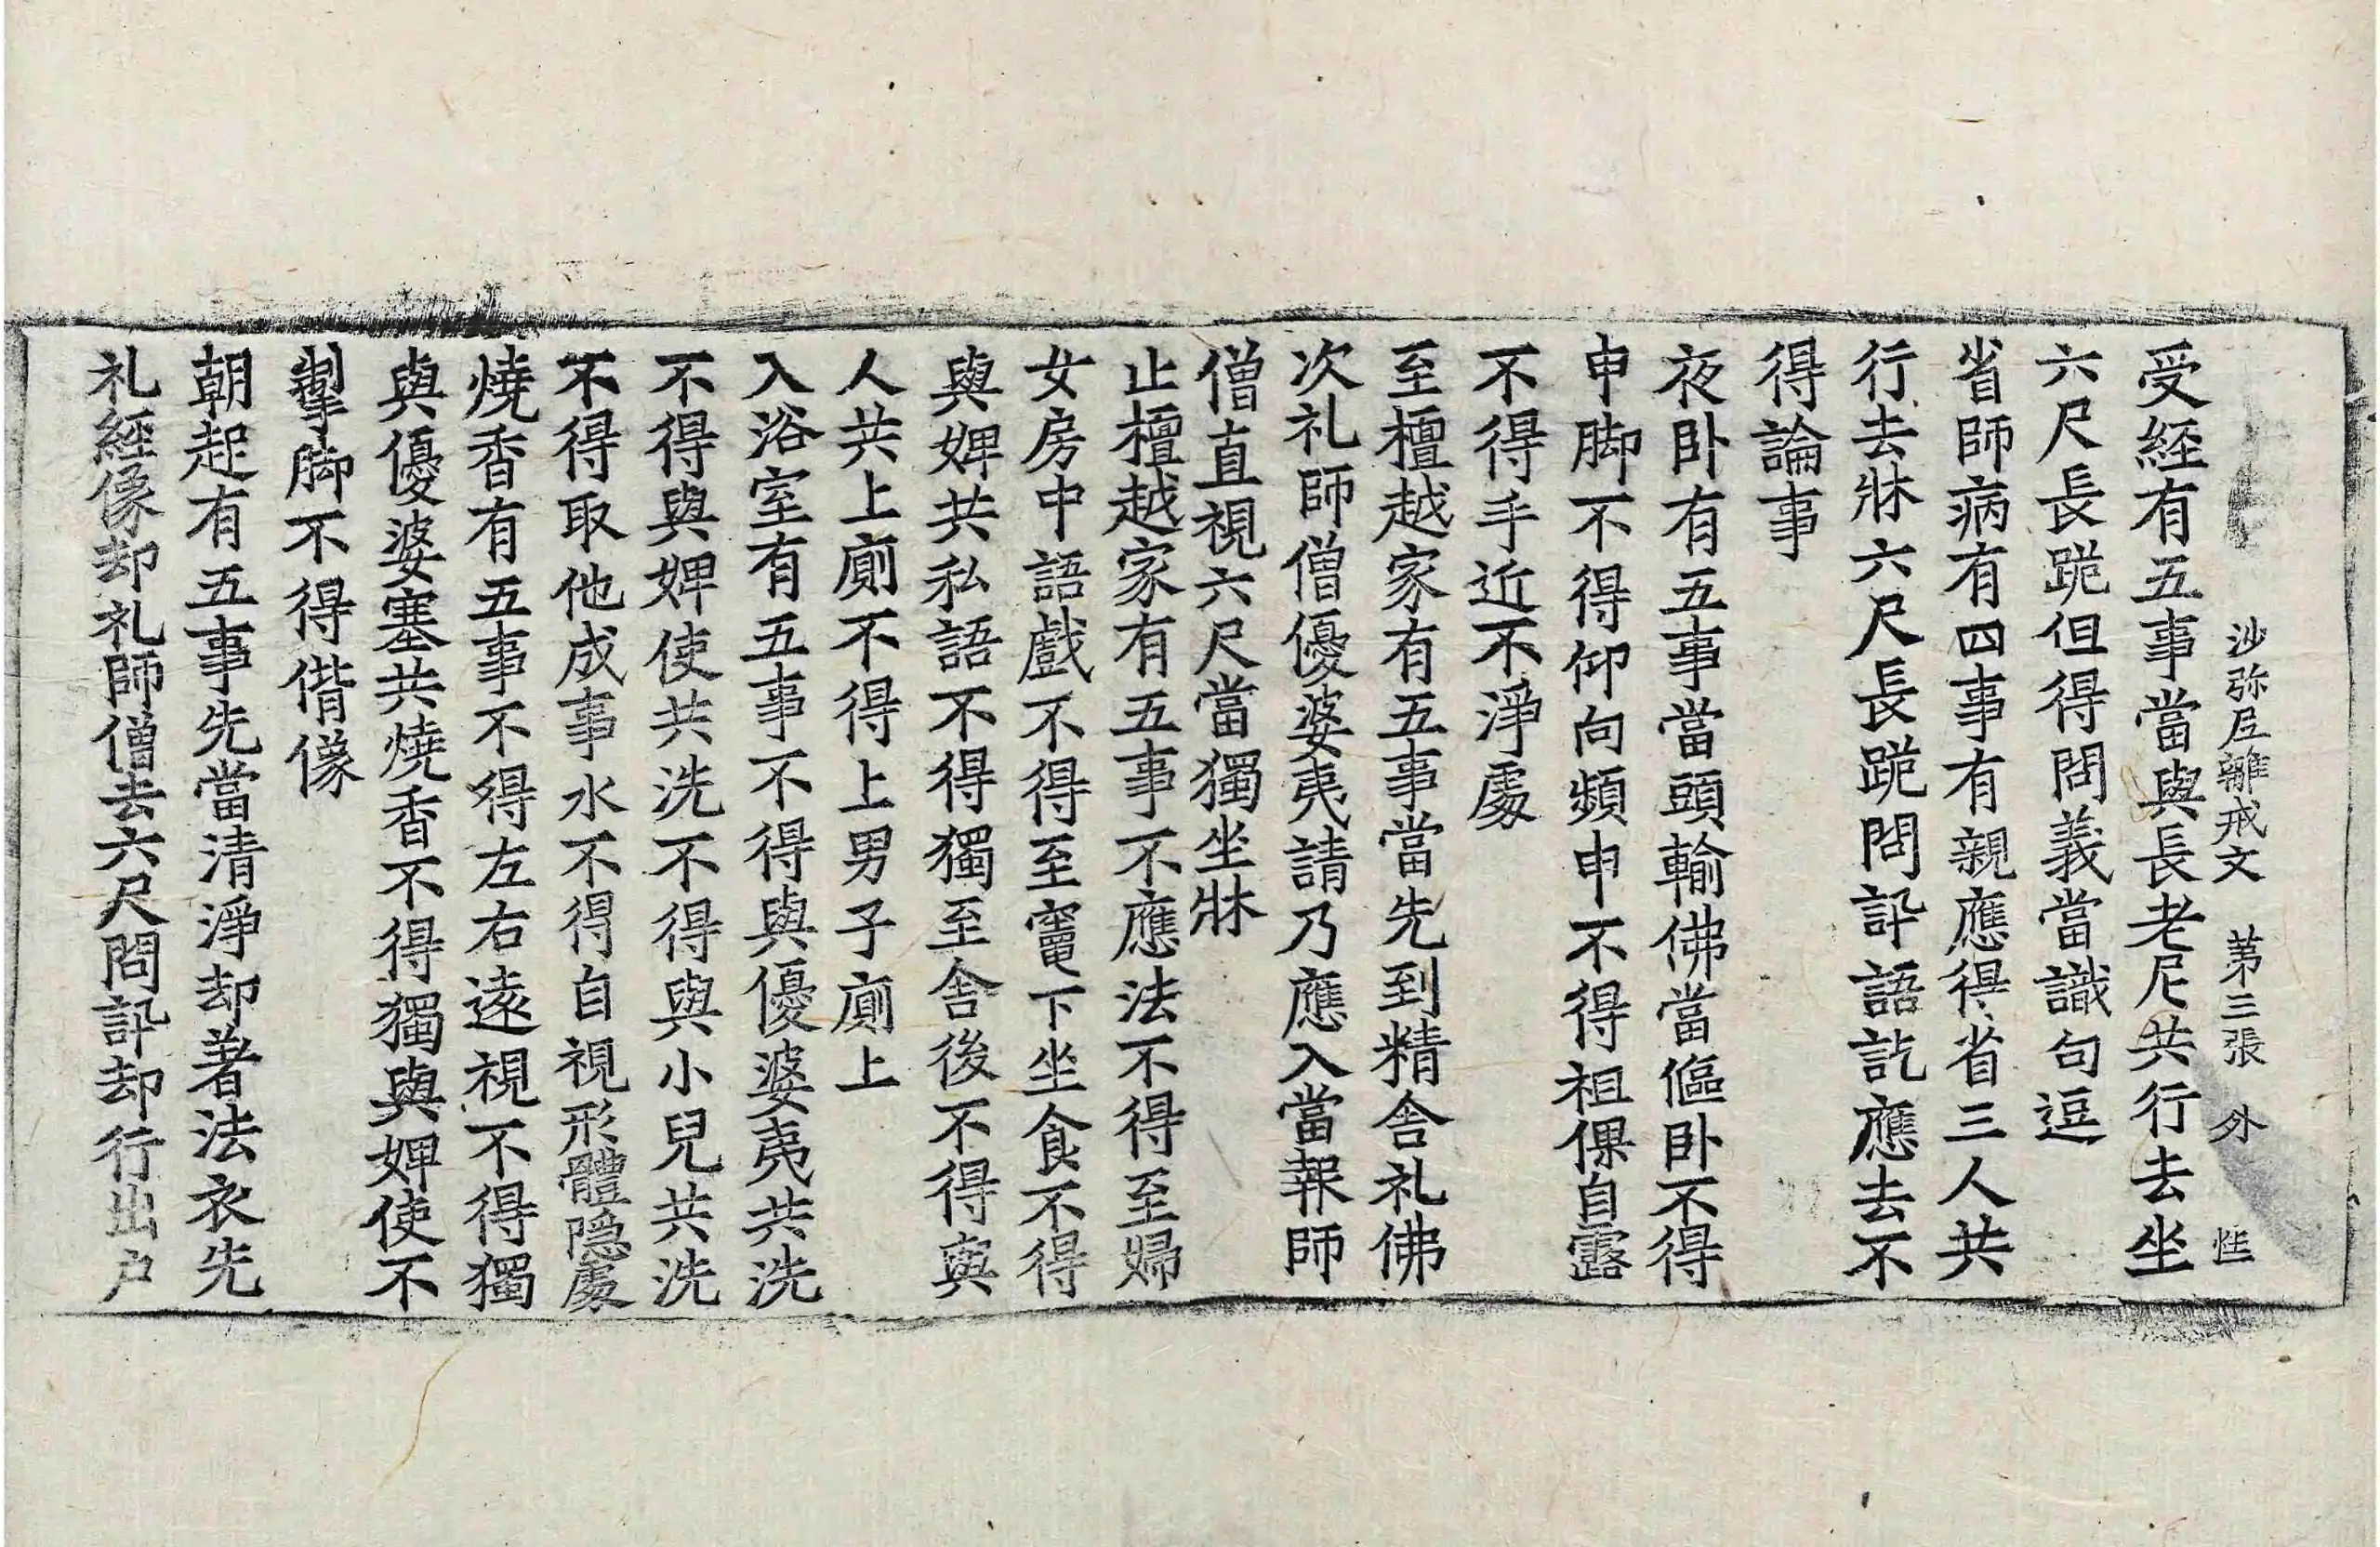 沙弥尼離戒文 第三張 外 性
受経有五事當與長老尼共行去坐
六尺長跪但得問義當識句逗
省師病有四事有親應得省三人共
行去牀六尺長跪問訊語訖應去不
得論事
夜卧有五事當頭輸佛當傴卧不得
申脚不得仰向頻申不得袒倮自露
不得手近不淨處
至檀越家有五事當先到精舍礼佛
次礼師僧優婆夷請乃應入當報師
僧直視六尺當獨坐牀
止檀越家有五事不應法不得至婦
女房中語戲不得至竃下坐食不得
與婢共私語不得獨至舍後不得與
人共上廁不得上男子廁上
入浴室有五事不得與優婆夷共洗
不得與婢使共洗不得與小兒共洗
不得取他成事水不得自視形體隱處
燒香有五事不得左右遠視不得獨
與優婆塞共燒香不得獨與婢使不
掣脚不得偕像
朝起有五事先當清淨却著法衣先
礼經像却礼師僧去六尺問訊却行出户